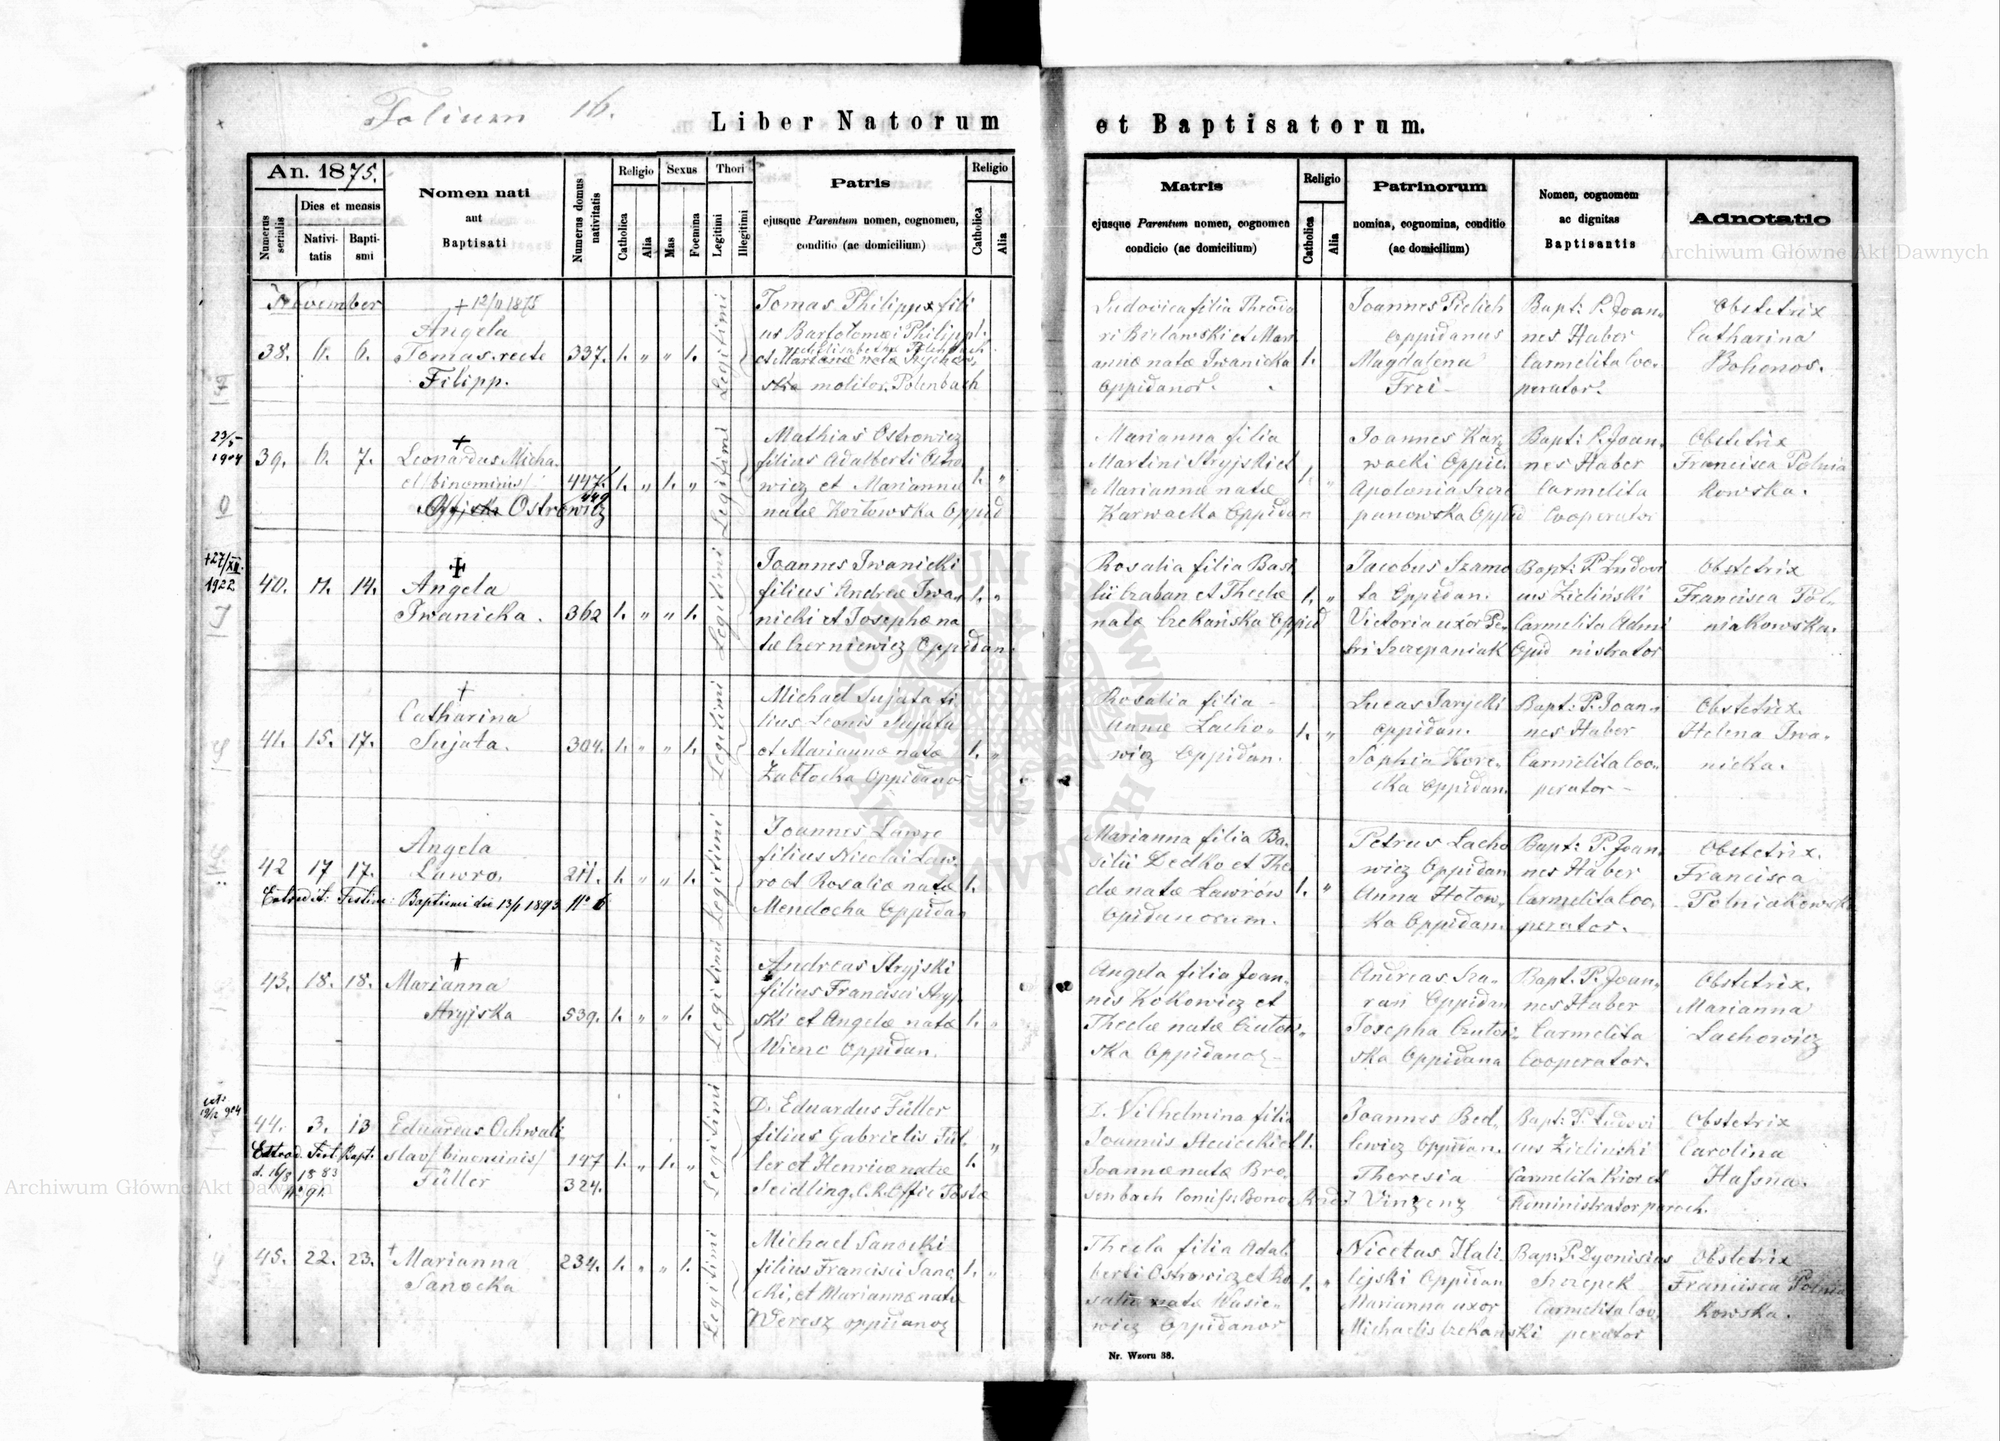 Folium 16.
Liber Natorum et Baptisatorum.
An. 1875.
Numerus serialis
Dies et mensis
Nativitatis
Baptismi
Nomen nati
aut
Baptisati
Numerus domus nativitatis
Religio
Catholica
Alia
Sexus
Mas
Foemina
Thori
Legitimi
Illegitimi
Patris
ejusque Parentum nomen, cognomen,
conditio (ac domicilium)
Religio
Catholica
Alia
Matris
ejusque Parentum nomen, cognomen
condicio (ac domicilium)
Religio
Catholica
Alia
Patrinorum
nomina, cognomina, conditio
(ac domicilium)
Nomen, cognomem
ac dignitas
Baptisantis
Adnotatio
November
+ 12/11 1875
38. 6. 6.
Angela
Tomas. recte
Filipp.
337. 1. " " 1.
Legitimi
Tomas Philipp fili
us Bartolomæi Philipp
et Mariannæ natæ
molitor. Polenbach
Ludovica filia Theodo
ri Bielawski et Mari
annæ natæ Iwanicka
Oppidanor.
1.
Joannes Pielich
oppidanus
Magdalena
Frei -
Bapt: P. Joan-
nes Haber
Carmelita Coo-
perator.
Obstetrix
Catharina
Bohonos.
23/5
1904
39. 6. 7.
+
Leonardus Micha-
el /binominis/
Ostrowicz
447. 1. " 1. "
449
Legitimi
Mathias Ostrowicz
filius Adalberti Ostro
wicz et Mariannæ
natæ Kozłowska Oppid
1. "
Marianna filia
Martini Stryjski et
Mariannæ natæ
Karwacka Oppidan
1. "
Joannes Kar-
wacki Oppid.
Apolonia Szcze
panowska Oppid
Bapt: P. Joan-
nes Haber
Carmelita
Cooperator
Obstetrix
Francisca Polnia
kowska.
+27/XII.
1922
40. 11. 14.
Angela
Iwanicka.
362 1. " " 1.
Legitimi
Joannes Iwanicki
filius Andreæ Iwa-
nicki et Josephæ na
tæ Czerniewicz Oppidan.
1. "
Rosalia filia Basi
lii Czaban et Theclæ
natæ Czekańska Oppid
1. "
Jacobus Szamo
ta Oppidan.
Victoria uxor Pe-
tri Szczepaniak Opid
Bapt: P. Ludovi
cus Zieliński
Carmelita Admi
nistrator
Obstetrix
Francisca Pol-
niakowska.
41. 15. 17.
+
Catharina
Sujata.
304. 1. " " 1.
Legitimi
Michael Sujata fi
lius Leonis Sujata
et Mariannæ natæ
Zabłocka Oppidanor
1. "
Rosalia filia
Annæ Lacho-
wicz Oppidan.
1. "
Lucas Jarycki
Oppidan.
Sophia Kore-
cka Oppidan.
Bapt: P. Joan-
nes Haber
Carmelita Coo-
perator -
Obstetrix.
Helena Iwa-
nicka.
42 17 17.
Angela
Lawro.
211. 1. " " 1.
Extradit: Testim: Baptismi die 13/1 1893 No 6
Legitimi
Joannes Lawro
filius Nicolai Law-
ro et Rosaliæ natæ
Mendocha Oppidan
1.
Marianna filia Ba-
silii Dedko et The
clæ natæ Ławrów
Opidanorum.
1. "
Petrus Lacho
wicz Oppidan
Anna Hołow-
ka Oppidan.
Bapt: P. Joan-
nes Haber
Carmelita Coo-
perator.
Obstetrix.
Francisca
Polniakowska
43. 18. 18.
Marianna
Stryjska
539. 1. " " 1.
Legitimi
Andreas Stryjski
filius Francisci Stryj-
ski et Angelæ natæ
Wienc Oppidan.
1. "
Angela filia Joan-
nis Kokowicz et
Theclæ natæ
ska Oppidanor -
"
Andreas Sza-
ran Oppidan
Josepha
ska Oppidana
Bapt. P. Joan-
nes Haber
Carmelita
Cooperator.
Obstetrix.
Marianna
Lachowicz
44. 3. 13
Eduardus Ochwali
slav /binominis/
Füller
147 1. " 1. "
324.
Extrad. Test. Bapt.
d. 16/8 1883
No 91.
Legitimi
D. Eduardus Füller
filius Gabrielis Fül-
ler et Henricæ natæ
Seidling, C. R. Offic Postæ
1. "
D. Vilhelmina filia
Joannis
Joannæ natæ Bro-
senbach
1.
Joannes Bed-
lewicz Oppidan.
Theresia
Vinzenz
Bapt: P. Ludovi
cus Zieliński
Carmelita Prior et
Administrator paroch.
Obstetrix
Carolina
Hassna.
45. 22. 23.
+ Marianna
Sanocka
234. 1. " " 1.
Legitimi
Michael Sanocki
filius Francisci Sano
cki, et Mariannæ natæ
Weresz oppidanor
1. "
Thecla filia Adal
berti Ostrowicz et Ro
saliæ natæ Wasie-
wicz Oppidanor
1. "
Nicetas Hali
lejski Oppidan
Marianna uxor
Michaelis Czekański
Bap: P. Dyonisius
Szczepek
Carmelita Coo-
perator
Obstetrix
Francisca Polnia
kowska.
Nr. Wzoru 38.
Archiwum Główne Akt Dawnych
Archiwum Główne Akt Dawnych
ARCHIWUM GŁÓWNE AKT DAWNYCH